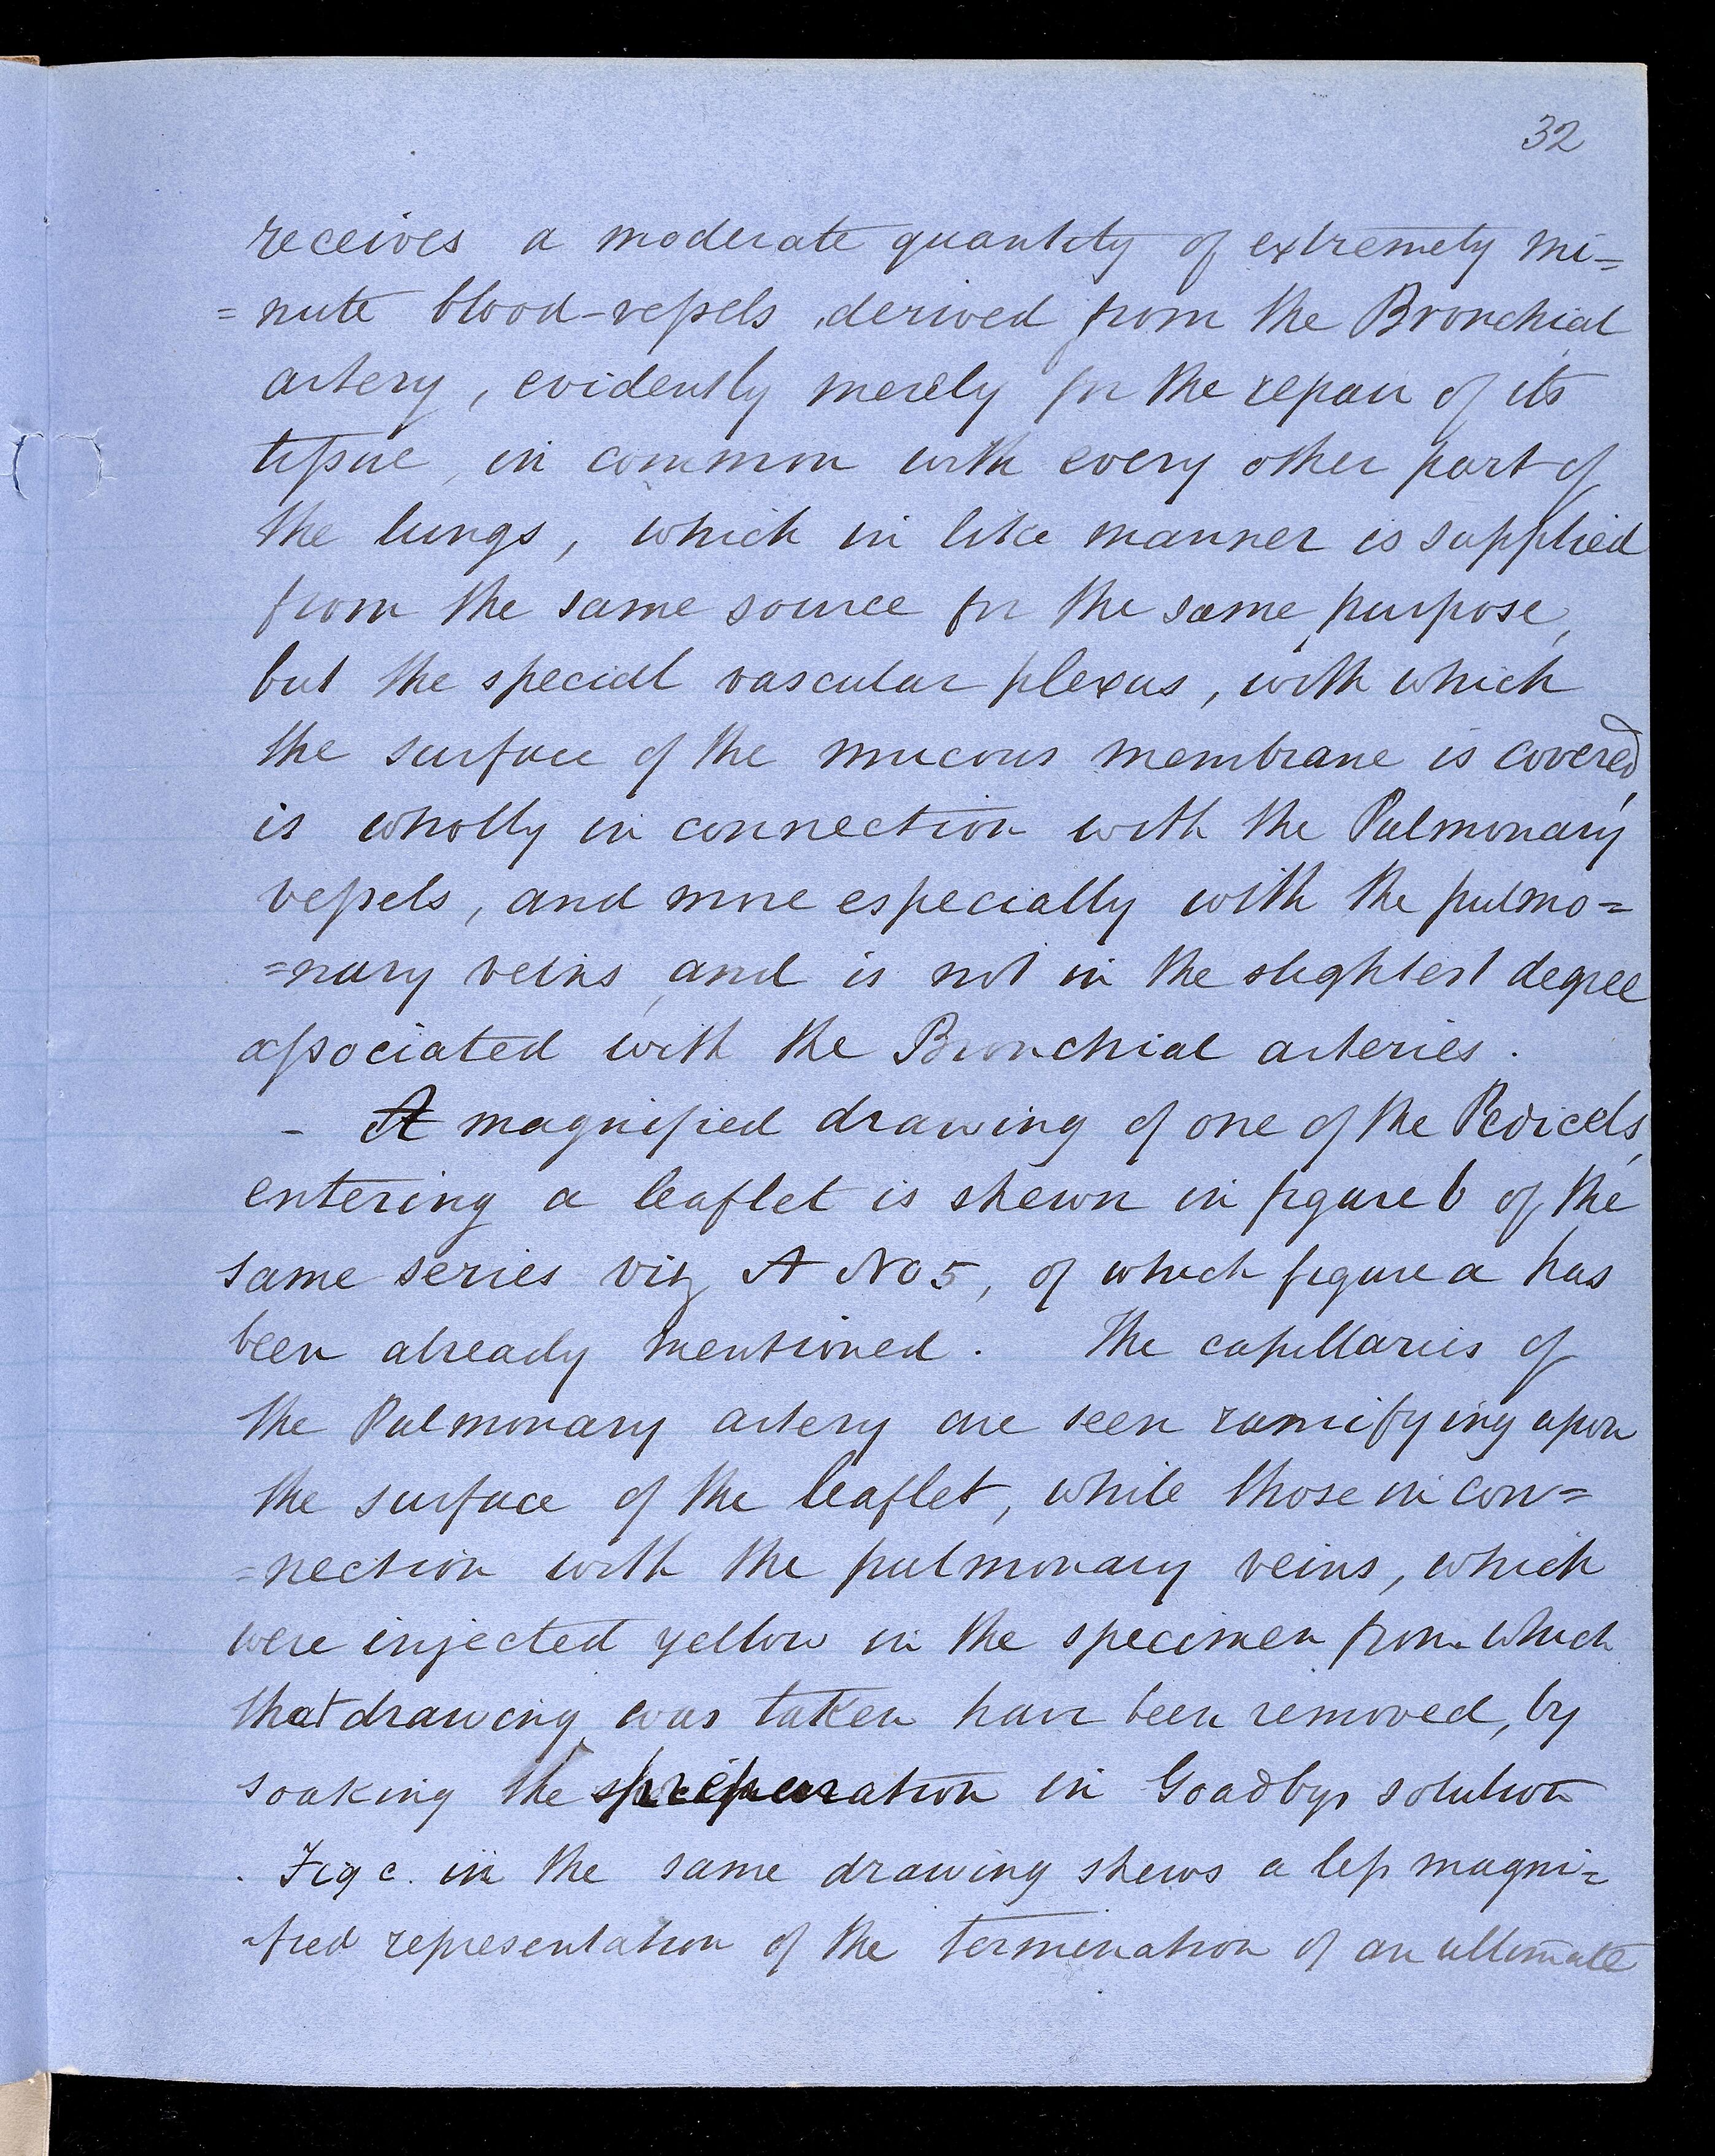 32
receives a moderate quantity of extremely mi=
=nute blood-vessels, derived from the Bronchial
artery, evidently merely for the repair of its
tissue, in common with every other part of
the lungs, which in like manner is supplied
from the same source for the same purpose,
but the special vascular plexus, with which
the surface of the mucous membrane is covered,
is wholly in connection with the Pulmonary
vessels, and more especially with the pulmo=
=nary veins, and is not in the slightest degree
associated with the Bronchial arteries.
- A magnified drawing of one of the Pedicels,
entering a leaflet is shewn in figure b of the
same series viz A No 5, of which figure a has
been already mentioned. The capillaries of
the Pulmonary artery are seen ramifying upon
the surface of the leaflet, while those in con=
=nection with the pulmonary veins, which
were injected yellow in the specimen from which
that drawing was taken have been removed, by
soaking the preparation in Goadbys solution
. Fig c. in the same drawing shews a less magni=
-fied representation of the termination of an ultimate